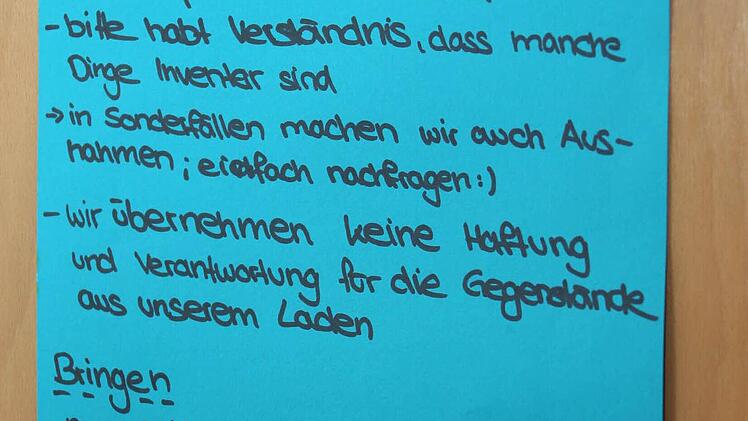 - bitte habt Verständnis, dass manche
Dinge Inventer sind
→ in Sonderfällen machen wir auch Aus-
nahmen; einfach nachfragen :)
- wir übernehmen keine Haftung
und Verantwortung für die Gegenstände
aus unserem Laden
Bringen